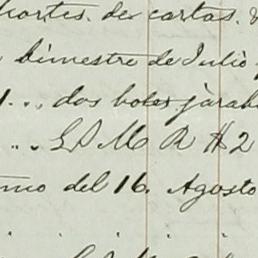 portes de cartas.
bimestre de Julio
dos botes jarab
G P M R # 2
del 16. Agosto